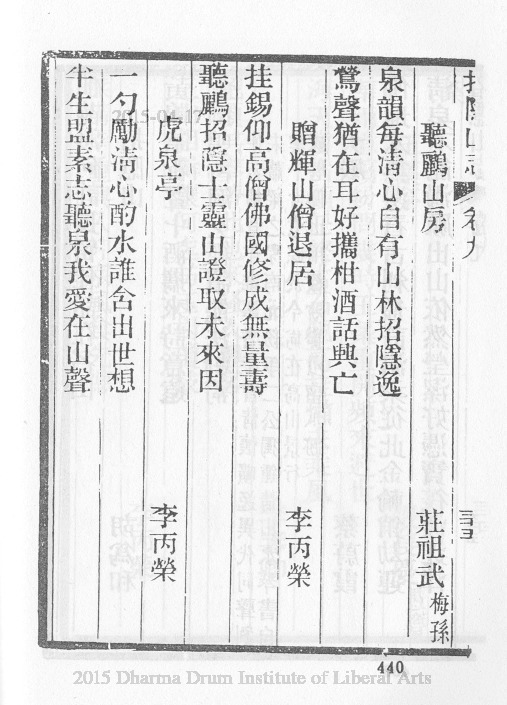 招隱山志 卷九
聽鸝山房 莊祖武 梅孫
泉韻每清心自有山林招隱逸
鶯聲猶在耳好攜柑酒話興亡
贈輝山僧退居 李丙榮
挂錫仰高僧佛國修成無量壽
聽鸝招隱士靈山證取未來因
虎泉亭 李丙榮
一勺勵清心酌水誰含出世想
半生盟素志聽泉我愛在山聲
440
2015 Dharma Drum Institute of Liberal Arts